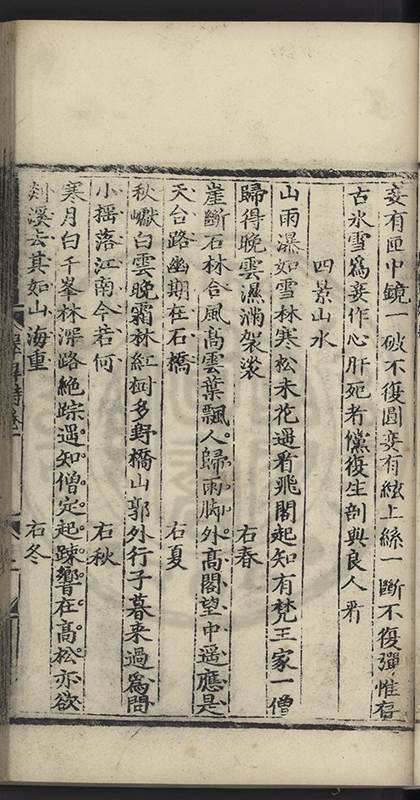 妾有匣中鏡一破不復圓妾有絃上絲一斷不復彈惟存
古氷雪爲妾作心肝死者儻復生剖與良人看
四景山水
山雨瀑如雪林寒松未花遥看飛閣起知有梵王家一僧
歸得晚雲濕滿袈裟 右春
崖斷石林合風髙雲葉飄人歸雨脚外髙閣望中遥應是
天台路幽期在石橋 右夏
秋巘白雲晚霜林紅樹多野橋山郭外行子暮来過爲問
小摇落江南今若何 右秋
寒月白千峯林深路絶踪遥知僧定起踈響在髙松亦欲
剡溪去其如山海重 右冬